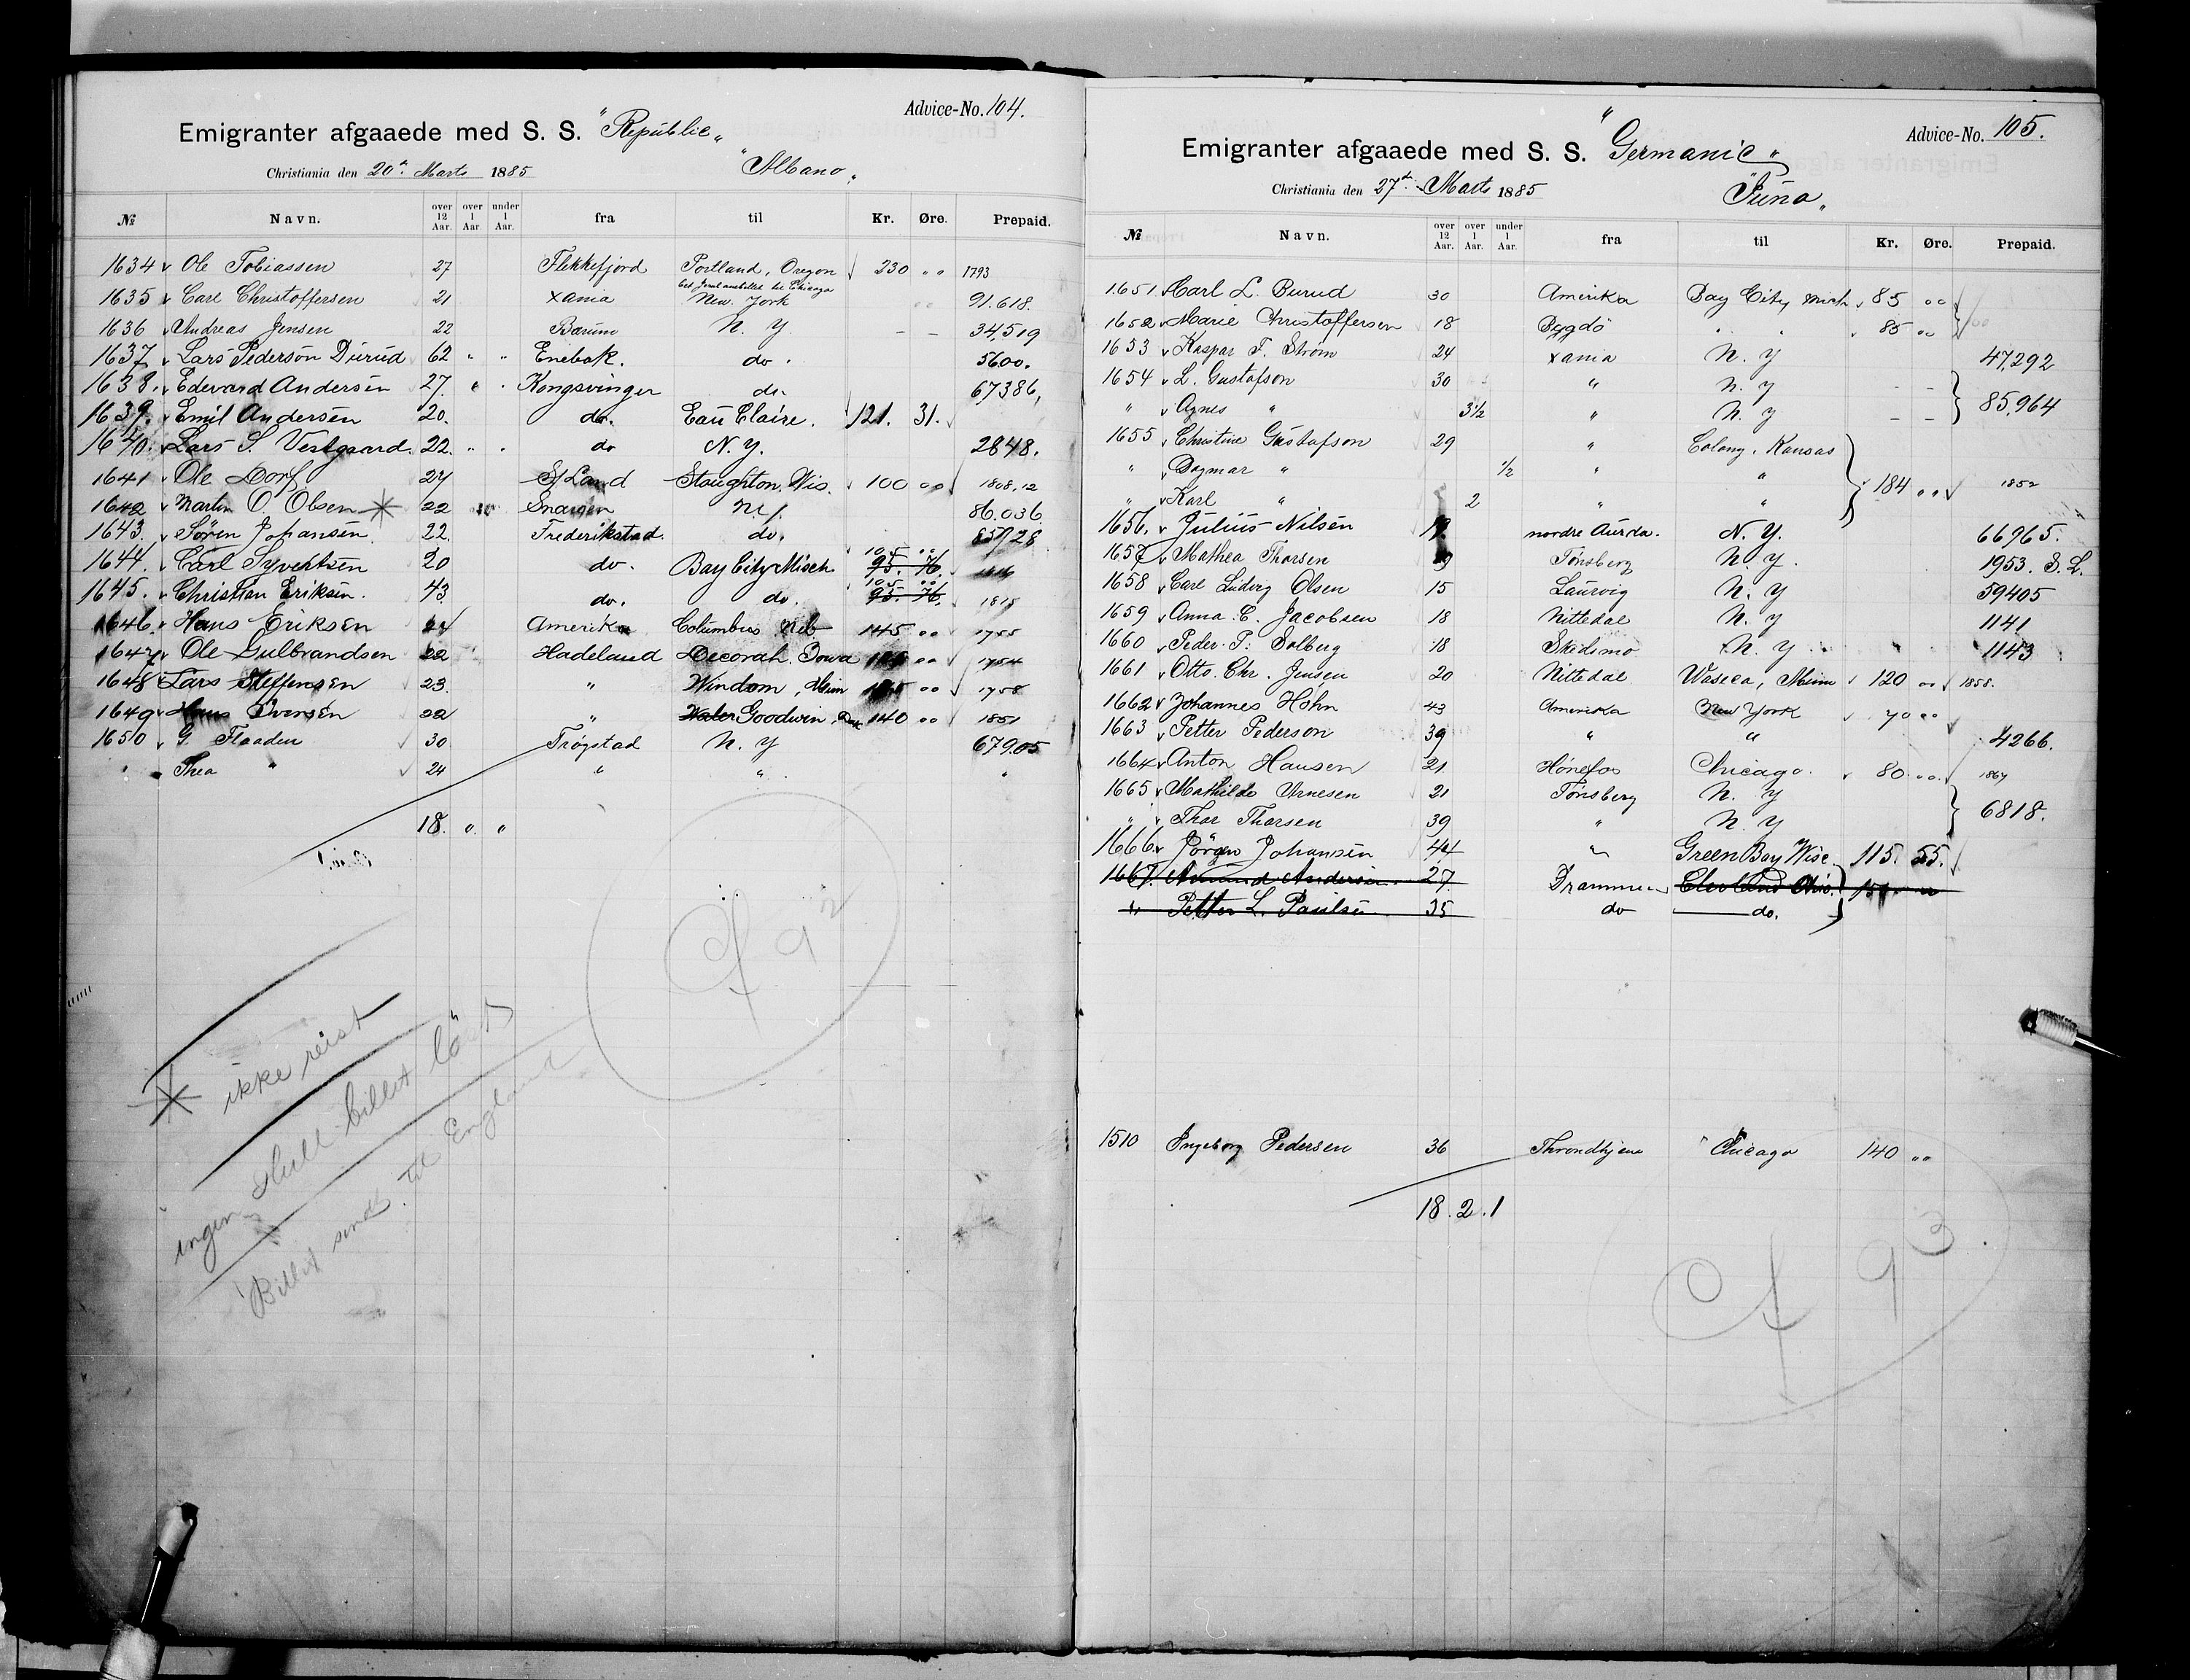 Advice-No. 104.
Emigranter afgaaede med S. S. "Republic"
Christiania den 20de Marts 1885 "Albano"
№ Navn. over 12 Aar. over 1 Aar. under 1 Aar. fra til Kr. Øre. Prepaid.
1634 Ole Tobiassen 27 Flekkefjord Portland, Oregon 230 " " 1793
1635 Carl Christoffersen 21 Xania New York 91.618.
1636 Andreas Jensen 22 Bærum N. Y. - - 34,519
1637 Lars Pederson Durud 62 " " Enebak. do. 5600.
1638. Edevard Andersen 27. " " Kongsvinger do. 67386,
1639. Emil Andersen 20. do. Eau Claire. 121. 31.
1640. Lars S. Vestgaard. 22. " " do N. Y. 2848.
1641 Ole Dorf 27 Stoughton, Wis. 100 " " 1808,12
1642 Martin O. Olsen * 22 N Y. 86.036
1643. Søren Johansen 22. Frederikstad. do.
1644. Carl Syvertsen 20 do. Bay City Misch. 105 " " 95. 76.
1645. Christian Eriksen. 43. do. do. 105 " " 95. 76. 1815
1646. Hans Eriksen 24 Amerika Columbus Neb 145 " " 1755
1647 Ole Gulbrandsen 22 Hadeland Decorah. Iowa " " 1754
1648 Lars Steffensen 23. " Windom, Minn " " 1758
1649 Hans Iversen 22 " Goodwin, Dak 140 " " 1851
1650 G. Flaaden 30 Trøgstad N. Y 67905
" Thea " 24 " " "
18. " "
* ikke reist
ingen skull billet løst
Billet sendt til England
Advice-No. 105.
Emigranter afgaaede med S. S. "Germanic"
Christiania den 27de Marts 1885 "Juno"
№ Navn. over 12 Aar. over 1 Aar. under 1 Aar. fra til Kr. Øre. Prepaid.
1651 Carl L. Burud 30 Amerika Bay City Mich 85 " "
1652 Marie Christoffersen 18 Bygdö " " 85 " "
1653 Kaspar F. Strøm 24 Xania N. Y 47,292
1654 L. Gustafson 30 " N. Y - -
" Agnes " 3½ " N. Y - - 85,964
1655 Christine Gustafson 29 " Colony, Kansas
" Dagmar " ½ " " 184 " " 1852
" Karl " 2 " "
1656. Julius Nilsen nordre Aurda. N. Y. 66965.
1657 Mathea Thorsen Tønsberg N. Y. 1953. S. L.
1658 Carl Ludvig Olsen 15 Laurvig N. Y 59405
1659 Anna C. Jacobsen 18 Nittedal N. Y 1141
1660 Peder P. Solberg 18 Skedsmo N. Y 1143
1661 Otto Chr. Jensen 20 Nittedal Waseca, Minn 120 " " 1858.
1662 Johannes Höhn 43 Amerika New York 70 " "
1663 Petter Pederson 39 " " 4266.
1664 Anton Hansen 21 Hønefos Chicago. 80 " " 1864
1665 Mathilde Arnesen 21 Tønsberg N. Y
" Thor Thorsen 39 " N. Y 6818.
1666 Jørgen Johansen 44 " Green Bay Wisc. 115. 55.
1667. Amund Andersen 27 Drammen Cleveland Ohio.
" Petter L. Paulsen 35 do do.
1510 Ingeborg Pedersen 36 Throndhjem Chicago 140 " "
18. 2. 1